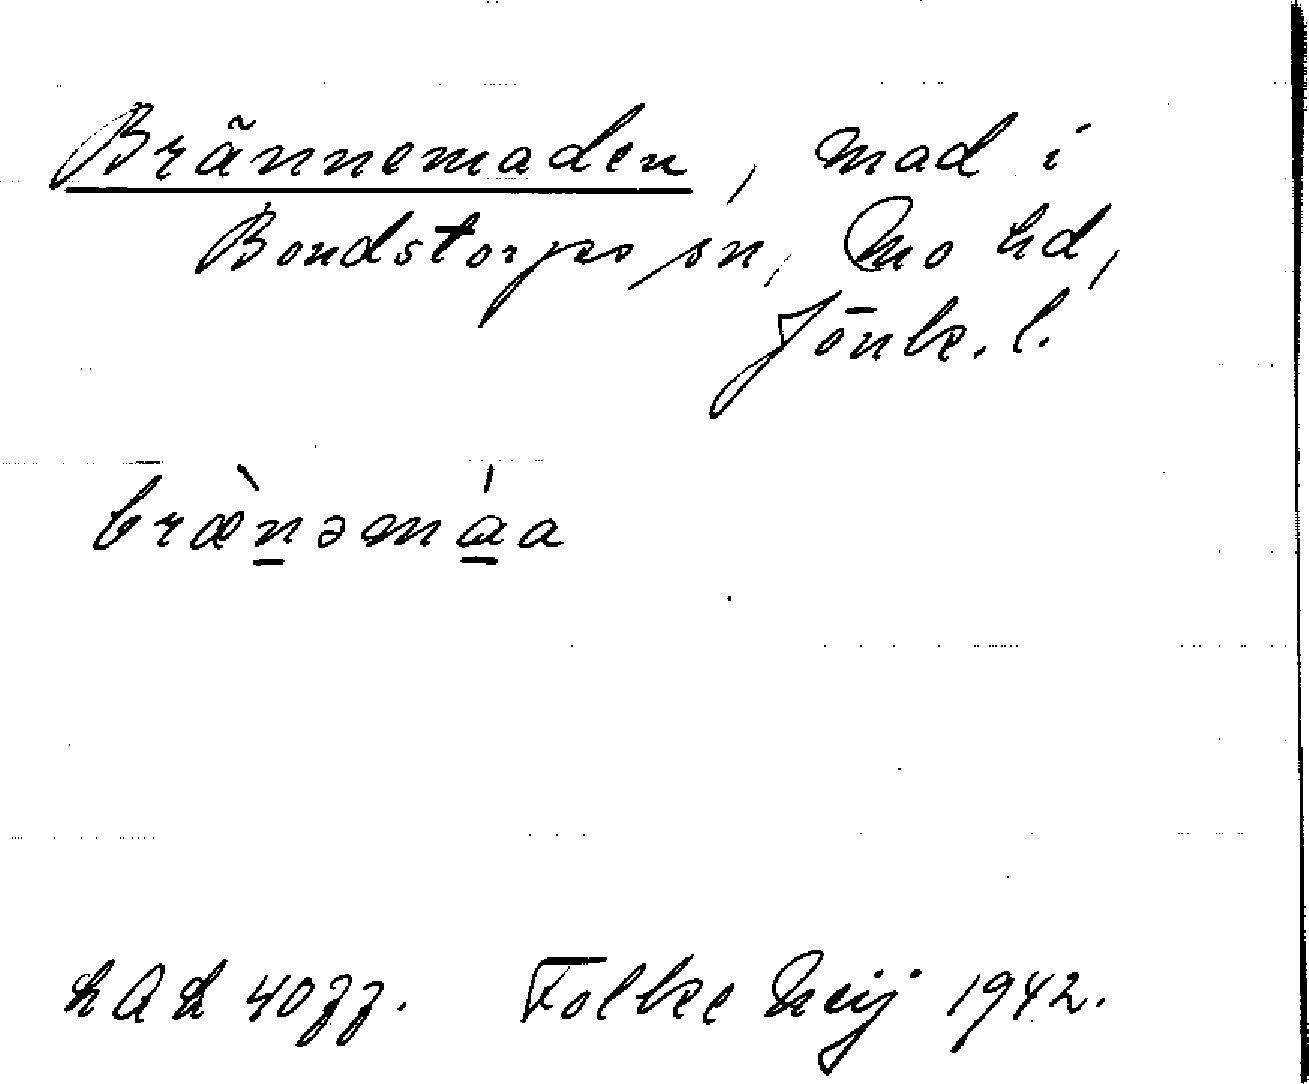 Brännemaden, mad i
Bondstorps sn, Mo hd,
Jönk. l.
bræ̀nəmáa
Folke Heij 1942.